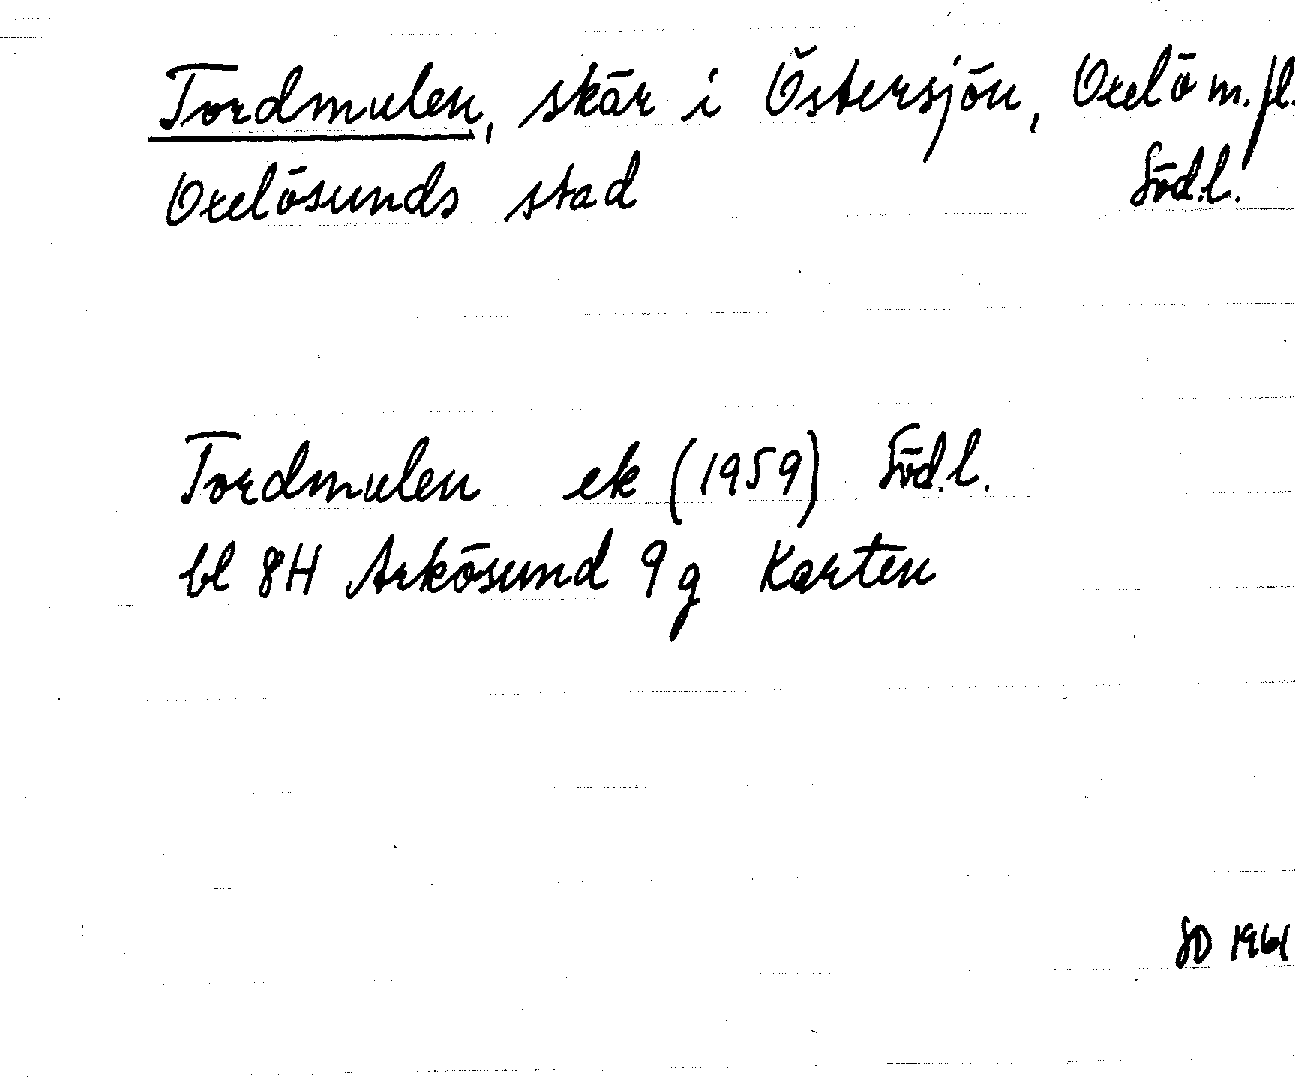 Tordmulen, skär i Östersjön, Oxelö m.fl.
Oxelösunds stad Söd.l.
Tordmulen ek (1959) Söd.l.
bl 8H Arkösund 9g Karten
SD 1961